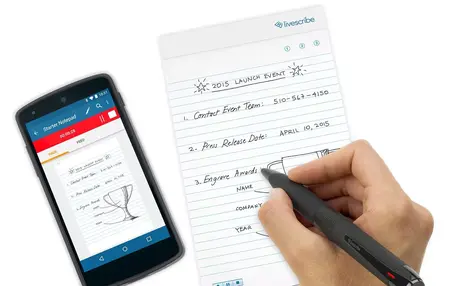 Starter Notepad
livescribe
1 2 3
2015 LAUNCH EVENT
1. Contact Event Team: 510-567-4150
2. Press Release Date: APRIL 10, 2015
3. Engrave Awards
NAME
COMPANY
YEAR